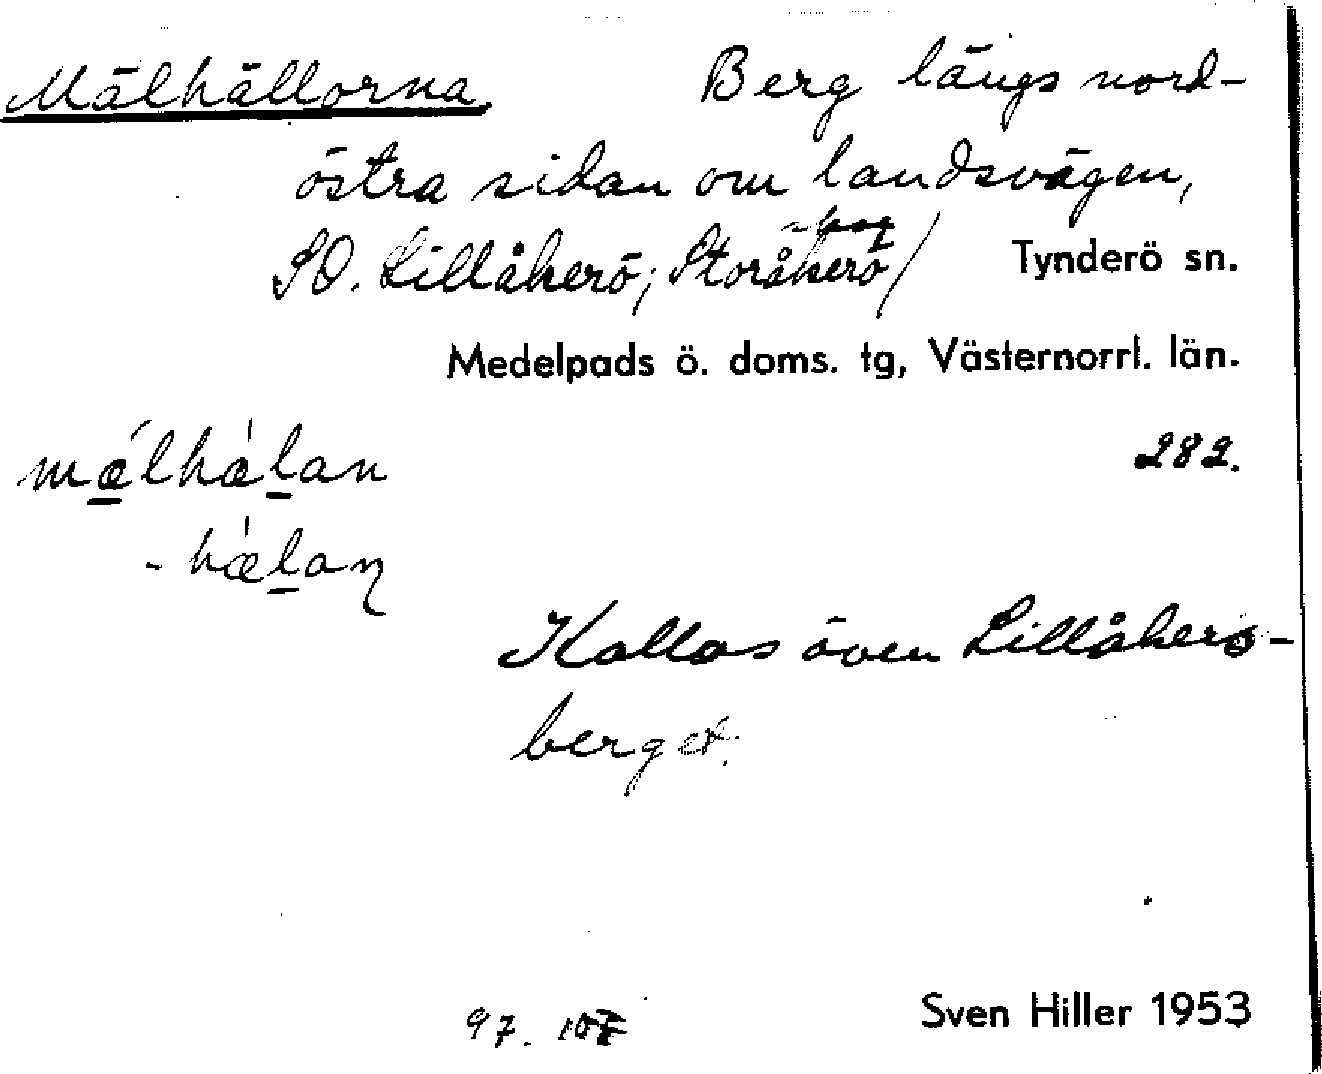 Mälhällorna Berg längs nord-
östra sidan om landsvägen,
SO. Lillåkerö; Storåkerö/ Tynderö sn.
Medelpads ö. doms. tg, Västernorrl. län.
mǽlhæ̀lan 282.
-hæ̀laɳ
Kallas även Lillåkerö-
berget.
97. Sven Hiller 1953